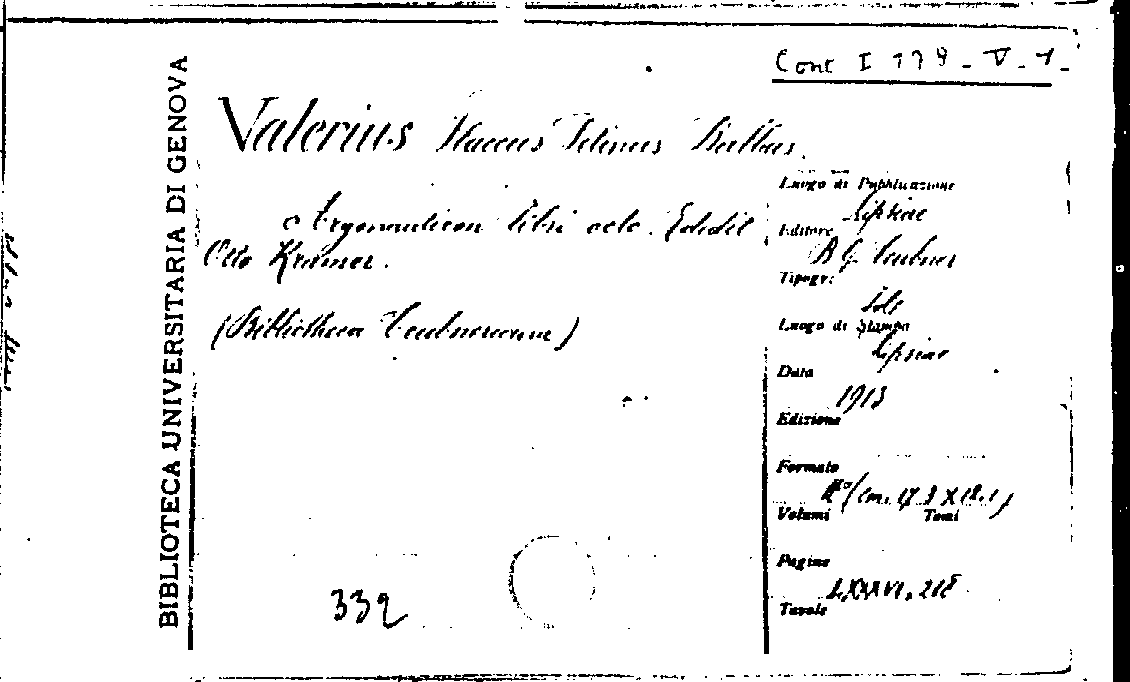 Cont I 179 - V - 1 -
BIBLIOTECA UNIVERSITARIA DI GENOVA
Valerius Flaccus Setinus Balbus.
Argonauticon libri octo. Edidit
Otto Kramer.
(Bibliotheca Teubneriana)
332
Luogo di Pubblicazione
Lipsiae
Editore
B G Teubner
Tipogr.
Luogo di Stampa
Lipsiae
Data
1913
Edizione
Formato
(cm. 17.3 X
Volumi Tomi
Pagine
LXXXVI, 218
Tavole